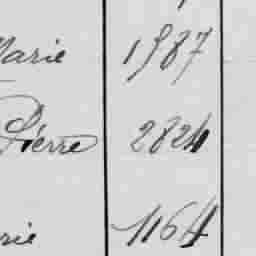 Marie 1987
Pierre 2824
rie 1164